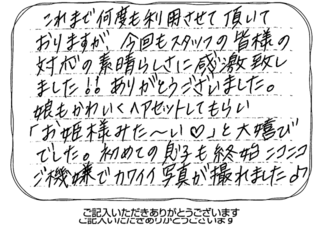 これまで何度も利用させて頂いて
おりますが、今回もスタッフの皆様の
対応の素晴らしさに感激致し
ました!!ありがとうございました。
娘もかわいくヘアセットしてもらい
「お姫様みた〜い♡」と大喜び
でした。初めての息子も終始ニコニコ
ご機嫌でカワイイ写真が撮れました♪
ご記入いただきありがとうございます
ご記入いただきありがとうございます